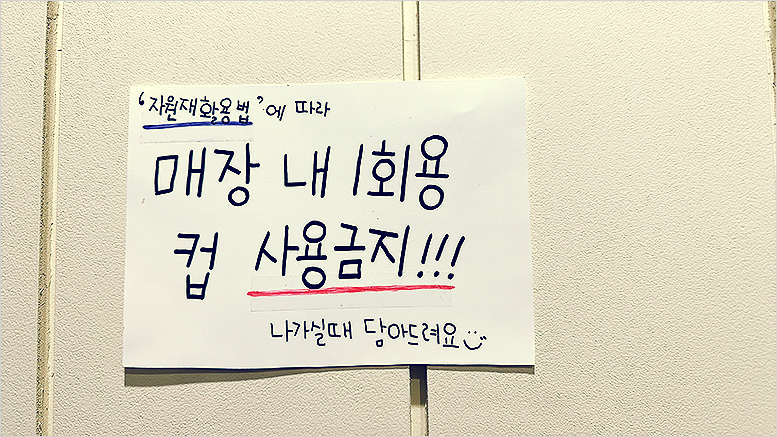 '자원재활용법'에 따라
매장 내 1회용
컵 사용금지!!!
나가실때 담아드려요